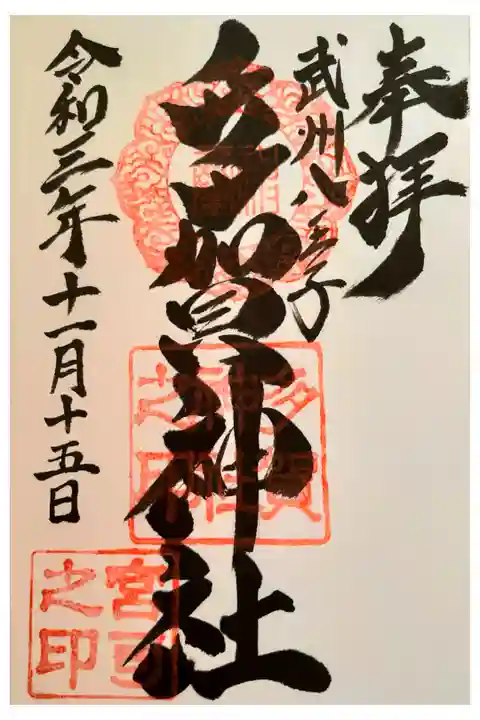 奉拝
武州八王子
多賀神社
令和三年十一月十五日
多賀
神社
之印
宮司
之印